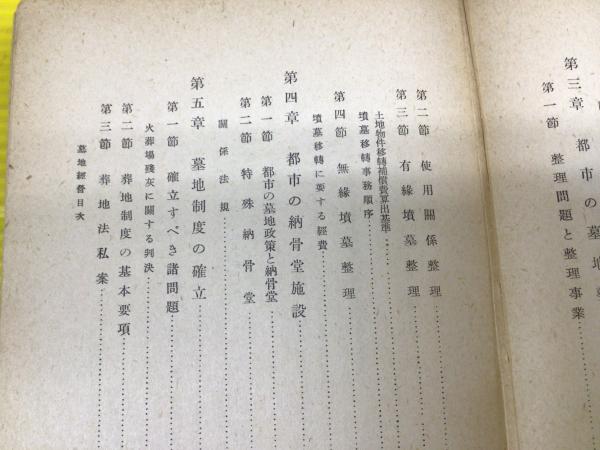 第三章 都市の墓地
第一節 整理問題と整理事業
第二節 使用關係整理
第三節 有緣墳墓整理
土地物件移轉補償費算出基準
墳墓移轉事務順序
第四節 無緣墳墓整理
墳墓移轉に要する經費
第四章 都市の納骨堂施設
第一節 都市の墓地政策と納骨堂
第二節 特殊納骨堂
關係法規
第五章 墓地制度の確立
第一節 確立すべき諸問題
火葬場殘灰に關する判決
第二節 葬地制度の基本要項
第三節 葬地法私案
墓地經營目次